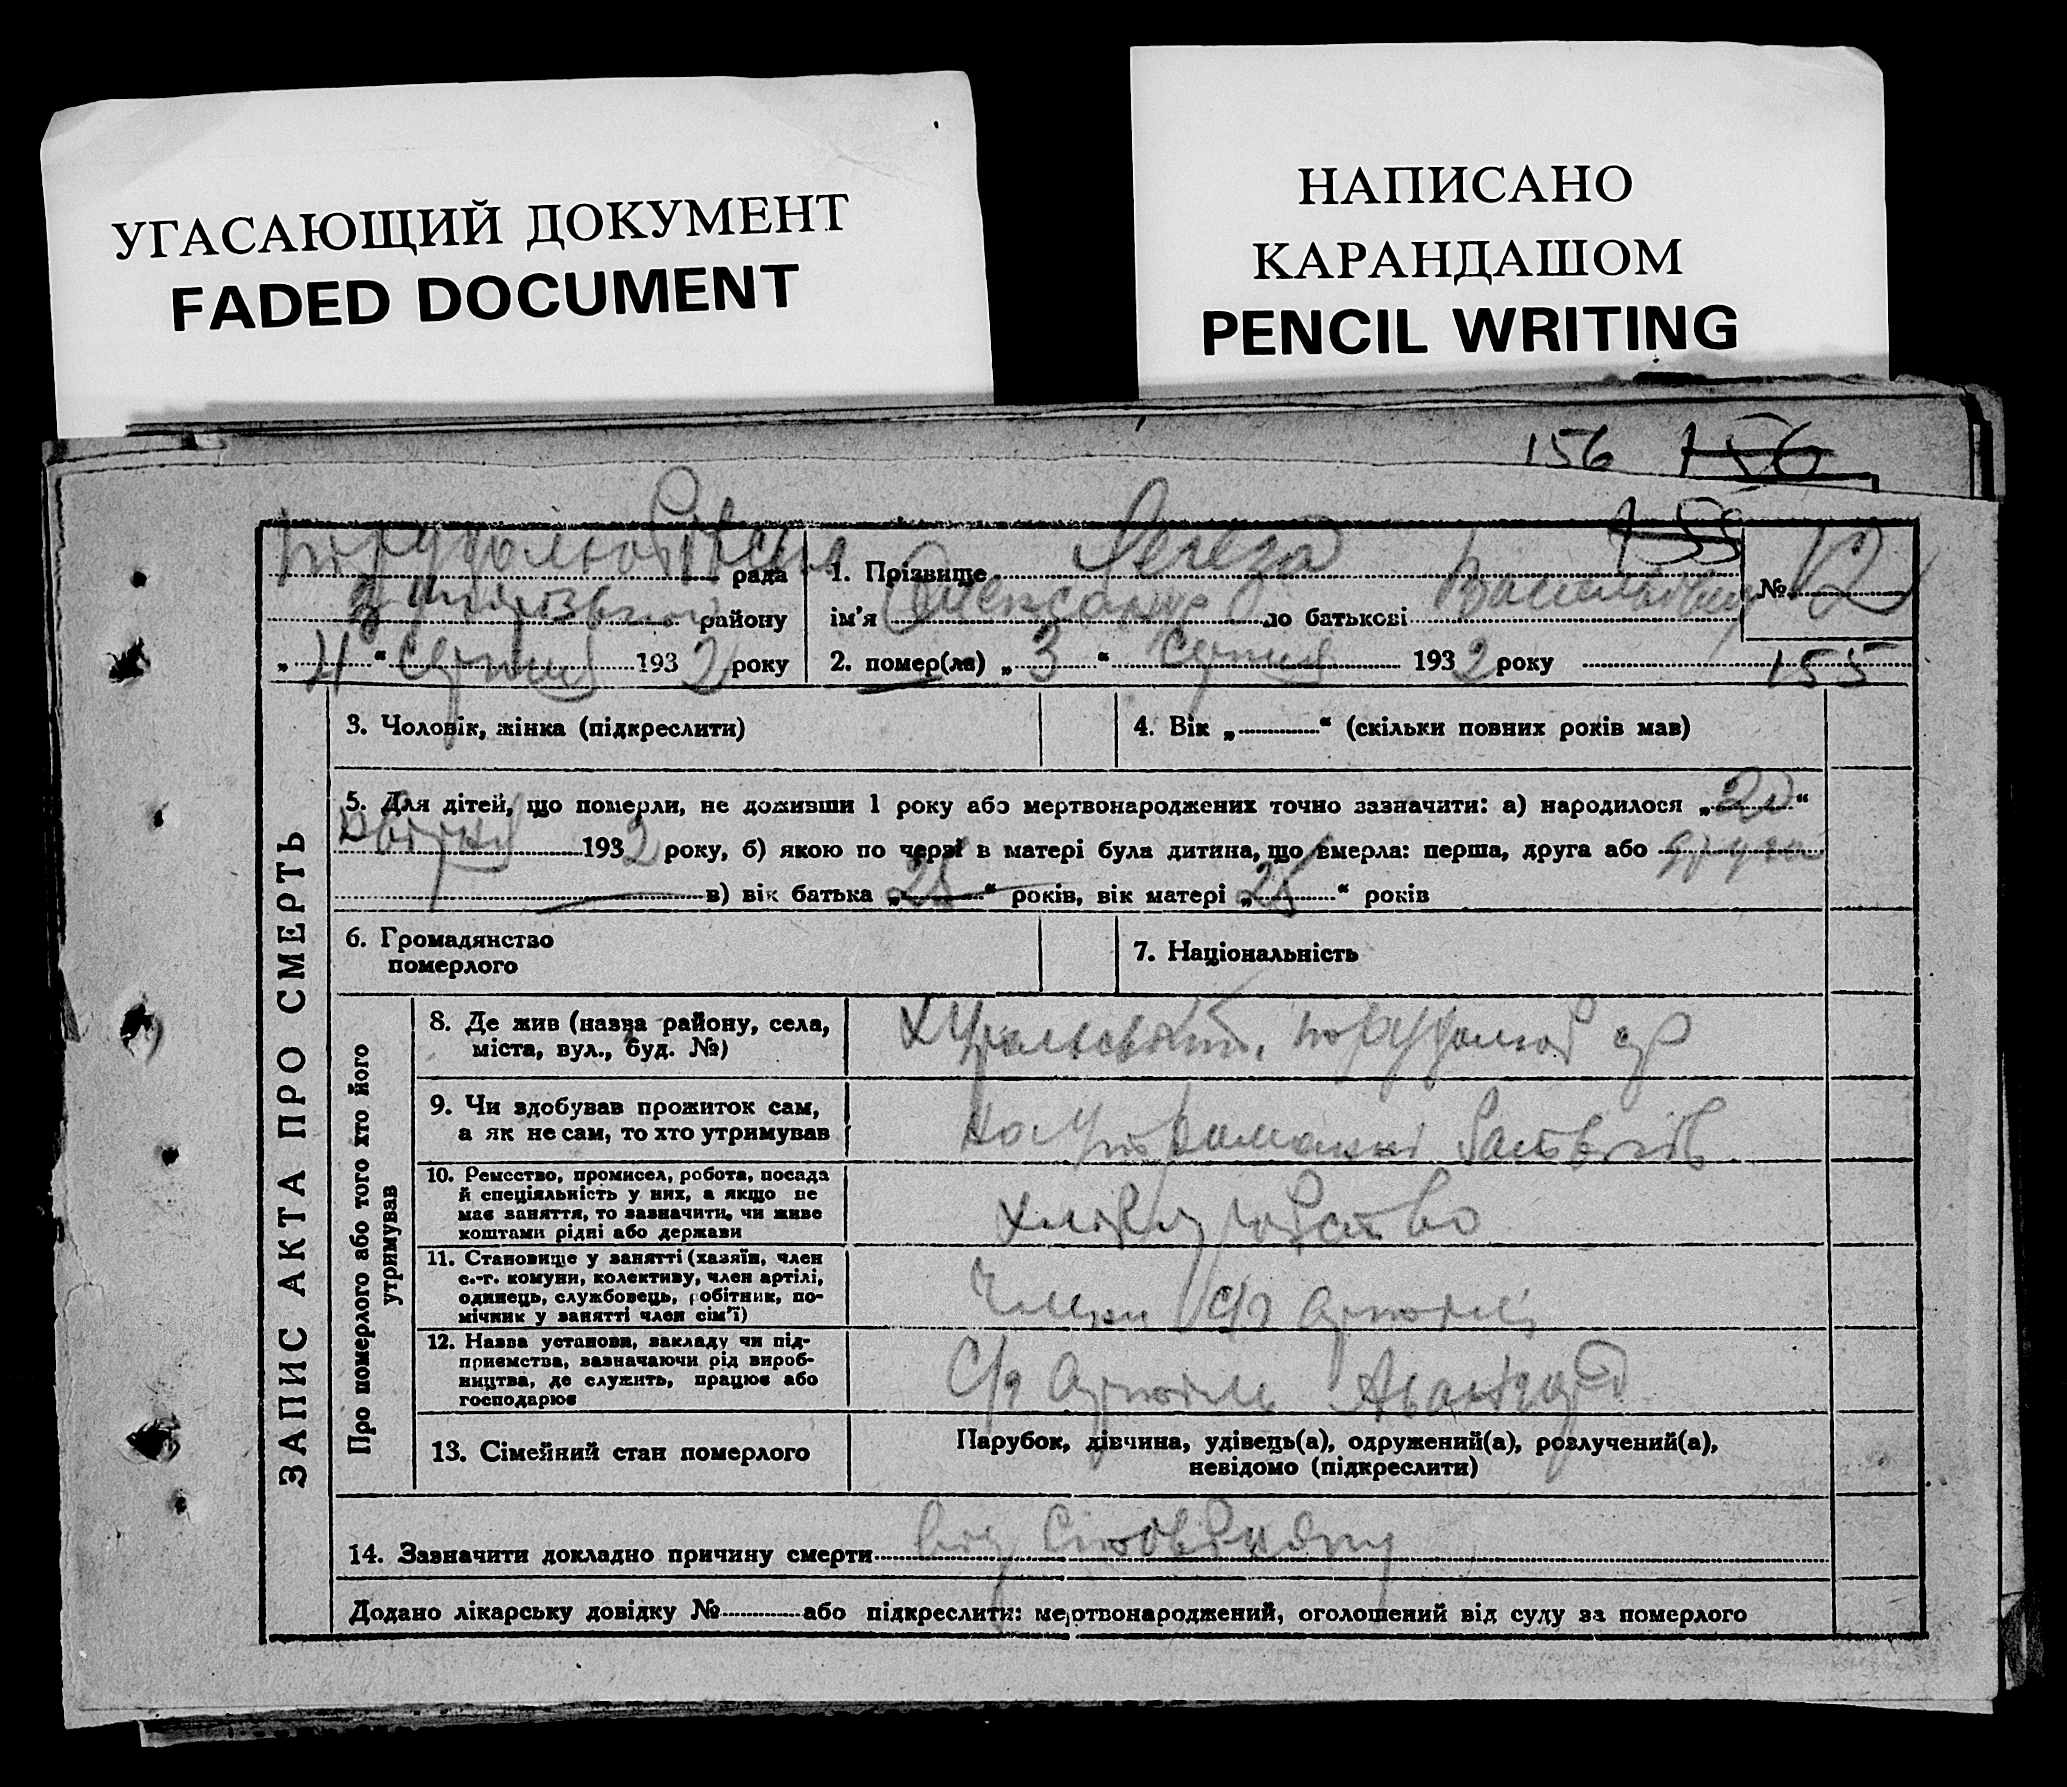 УГАСАЮЩИЙ ДОКУМЕНТ
FADED DOCUMENT
НАПИСАНО
КАРАНДАШОМ
PENCIL WRITING
156 156
155
рада
району
„4“ серпня 1932 року
1. Прізвище Легеза
ім'я Олександр по батькові Васильович
№ 12
2. помер(ла) „3“ серпня 1932 року
155
ЗАПИС АКТА ПРО СМЕРТЬ
3. Чоловік, жінка (підкреслити)
4. Вік „ “ (скільки повних років мав)
5. Для дітей, що померли, не доживши 1 року або мертвонароджених точно зазначити: а) народилося „20“
1932 року, б) якою по черзі в матері була дитина, що вмерла: перша, друга або друга
в) вік батька „25“ років, вік матері „25“ років
6. Громадянство
померлого
7. Національність
Про померлого або того хто його
утримував
8. Де жив (назва району, села,
міста, вул., буд. №)
9. Чи здобував прожиток сам,
а як не сам, то хто утримував
на утриманні батьків
10. Ремество, промисел, робота, посада
й спеціяльність у них, а якщо не
має заняття, то зазначити, чи живе
коштами рідні або держави
хліборобство
11. Становище у занятті (хазяїн, член
с.-г. комуни, колективу, член артілі,
одинець, службовець, робітник, по-
мічник у занятті член сім'ї)
Член с/г артілі
12. Назва установи, закладу чи під-
приємства, зазначаючи рід вироб-
ництва, де служить, працює або
господарює
С/г артіль Авангард
13. Сімейний стан померлого
Парубок, дівчина, удівець(а), одружений(а), розлучений(а),
невідомо (підкреслити)
14. Зазначити докладно причину смерти від
Додано лікарську довідку № або підкреслити: мертвонароджений, оголошений від суду за померлого